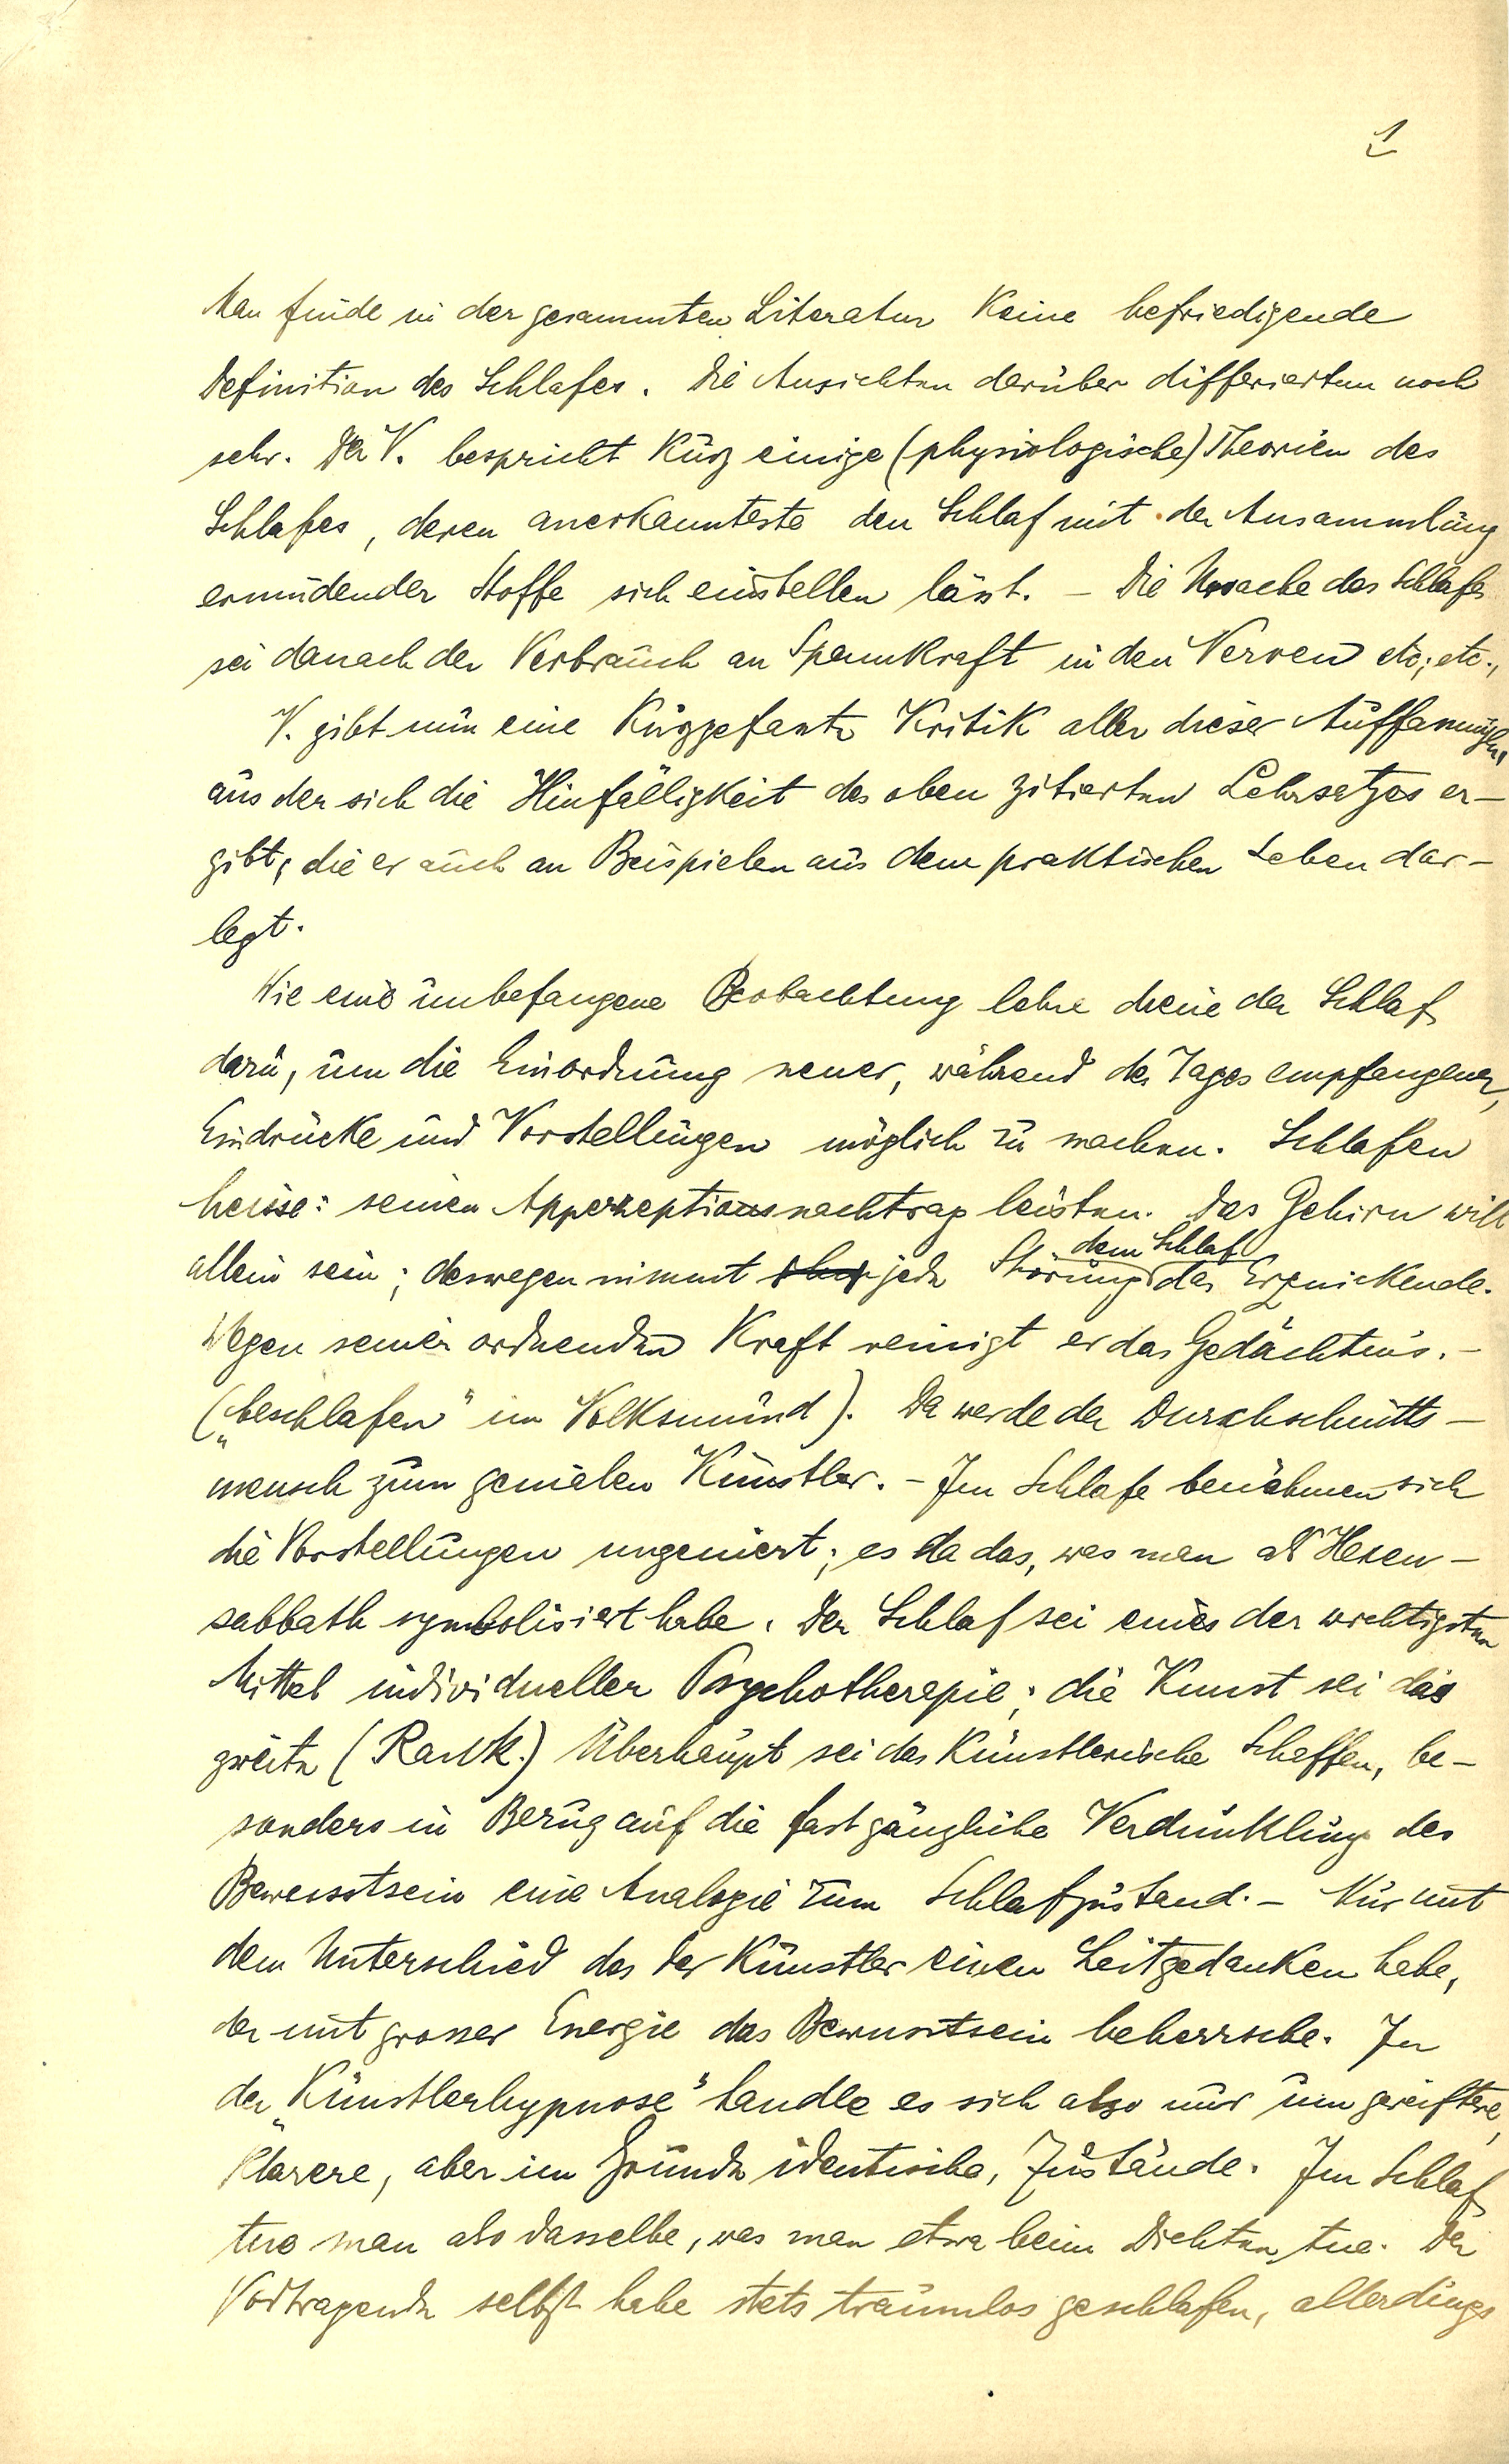 1
Man finde in der gesammten Literatur keine befriedigende
Definition des Schlafes. Die Ansichten darüber differierten noch
sehr. Der V. bespricht kurz einige (physiologische) Theorien des
Schlafes, deren anerkannteste den Schlaf mit der Ansammlung
ermüdender Stoffe sich einstellen lässt. – Die Ursache des Schlafes
sei danach der Verbrauch an Spannkraft in den Nerven etc; etc.,
V. gibt nun eine kurzgefasste Kritik aller dieser Auffassungen,
aus der sich die Hinfälligkeit des oben zitierten Lehrsatzes er–
gibt, die er auch an Beispielen aus dem praktischen Leben dar–
legt.
Wie eine unbefangene Beobachtung lehre diene der Schlaf
dazu, um die Einordnung neuer, während des Tages empfangener,
Eindrücke und Vorstellungen möglich zu machen. Schlafen
heisse: seinen Apperzeptionsnachtrag leisten. Das Gehirn will
allein sein; deswegen nimmt jede Störung dem Schlaf das Erquickende.
Wegen seiner ordnenden Kraft reinigt er das Gedächtnis. –
(„beschlafen" im Volksmund). Da werde der Durchschnitts–
mensch zum genialen Künstler. – Im Schlafe benähmen sich
die Vorstellungen ungeniert; es da das, was man als Hexen–
sabbath symbolisiert habe. Der Schlaf sei eines der wichtigsten
Mittel individueller Psychotherapie; die Kunst sei das
zweite (Rank.) Überhaupt sei das künstlerische Schaffen, be–
sonders in Bezug auf die fast gänzliche Verdunklung des
Bewusstsein eine Analogie zum Schlafzustand. – Nur mit
dem Unterschied das der Künstler einen Leitgedanken habe,
der mit grosser Energie das Bewusstsein beherrsche. In
der „Künstlerhypnose" handle es sich also nur um gereiftere,
klarere, aber im Grunde identische, Zustände. Im Schlaf
tue man also dasselbe, was man etwa beim Dichten tue. Der
Vortragende selbst habe stets traumlos geschlafen, allerdings